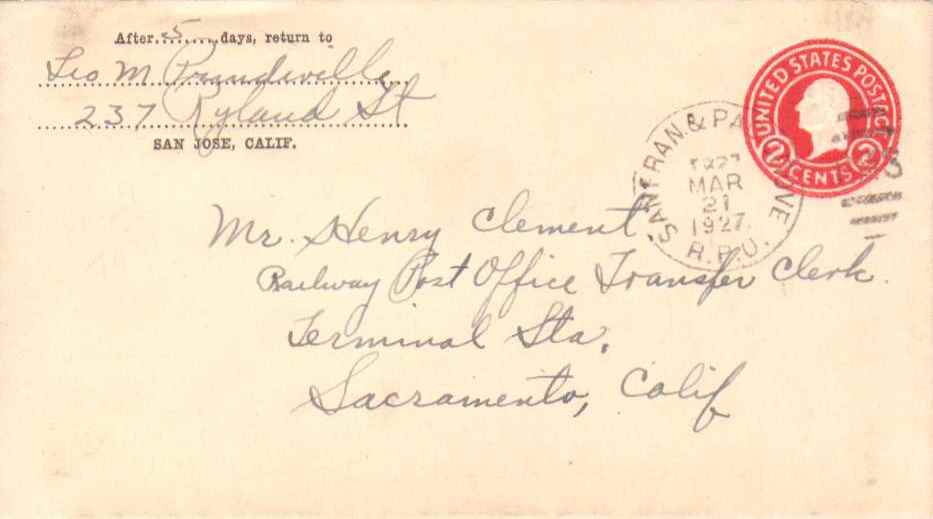 After 5 days, return to
Leo M. Prindiville
237 Ryland St
SAN JOSE, CALIF.
UNITED STATES POSTAGE
2 CENTS 2
SAN FRAN. & PA OVE
1927
MAR
21
1927
R.P.O.
Mr. Henry Clement
Railway Post Office Transfer Clerk.
Terminal Sta.
Sacramento, Calif